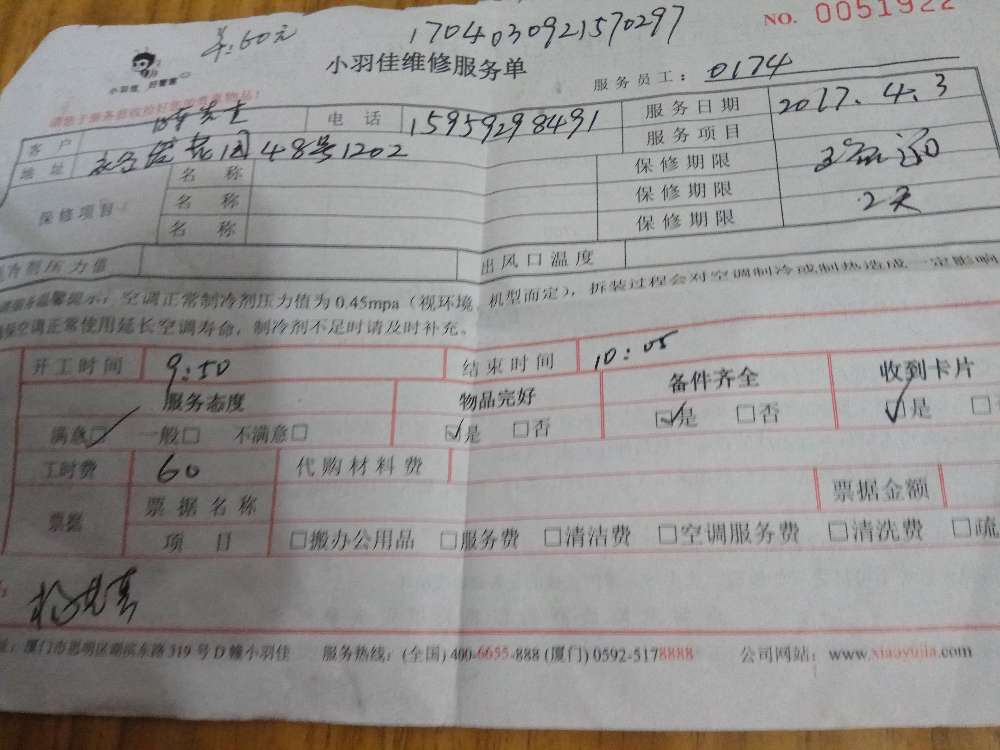 单:60元 1704030921570297 NO. 0051922
小羽佳维修服务单
小羽佳 好管家
服务员工: 0174
客户 先生 电话 15959298491 服务日期 2017.4.3
地址 花园48号1202 服务项目
保修项目 名称 保修期限
名称 保修期限 2天
名称 保修期限
冷剂压力值 出风口温度
提示:空调正常制冷剂压力值为0.45mpa(视环境、机型而定),拆装过程会对空调制冷或制热造成一定影响
保空调正常使用延长空调寿命,制冷剂不足时请及时补充。
开工时间 9:50 结束时间 10:05
服务态度 物品完好 备件齐全 收到卡片
满意☑ 一般□ 不满意□ ☑是 □否 ☑是 □否 ☑是 □
工时费 60 代购材料费
票据 票据名称 票据金额
项目 □搬办公用品 □服务费 □清洁费 □空调服务费 □清洗费 □疏
址:厦门市思明区湖滨东路319号D幢小羽佳 服务热线:(全国)400-6655-888(厦门)0592-5178888 公司网站:www.xiaoyujia.com